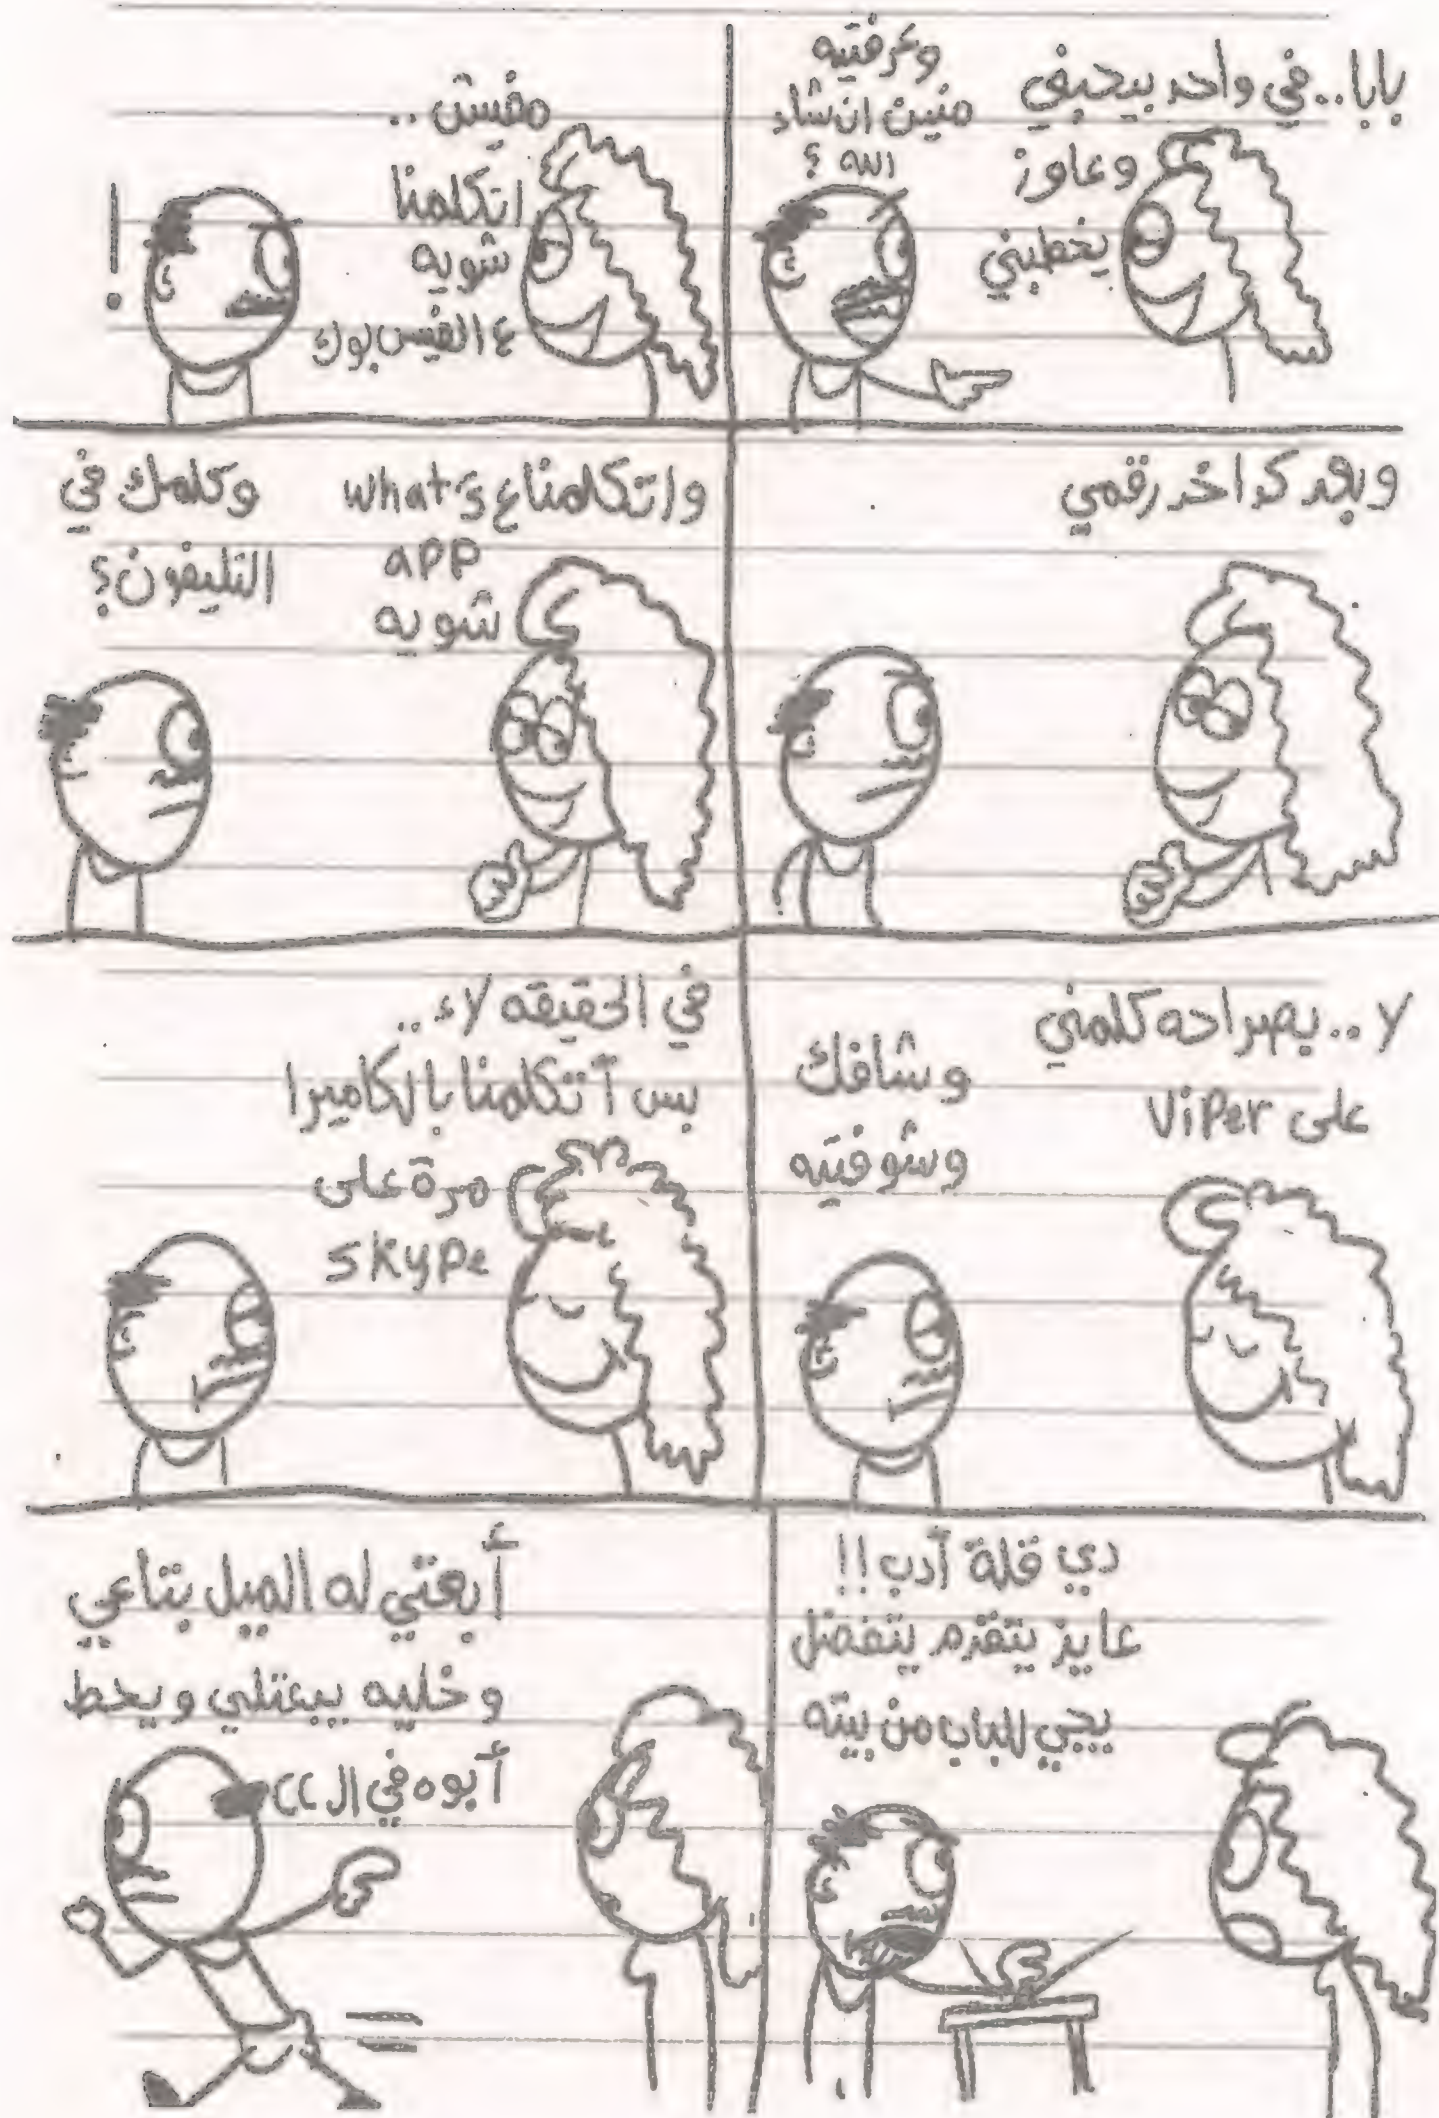 بابا.. في واحد بيحبني
وعاوز
يخطبني
وعرفتيه
منين ان شاء
الله ؟
مفيش ..
اتكلمنا
شويه
ع الفيس بوك
!
وبعد كدا خد رقمي
واتكلمنا ع what's
app
شويه
وكلمك في
التليفون؟
لا .. بصراحه كلمني
على Viper
وشافك
وشوفتيه
في الحقيقه لاء ..
بس أتكلمنا بالكاميرا
مرة على
skype
دي قلة أدب!!
عايز يتقدم يتفضل
يجي للباب من بيته
أبعتي له الميل بتاعي
وخليه يبعتلي ويحط
أبوه في ال CC